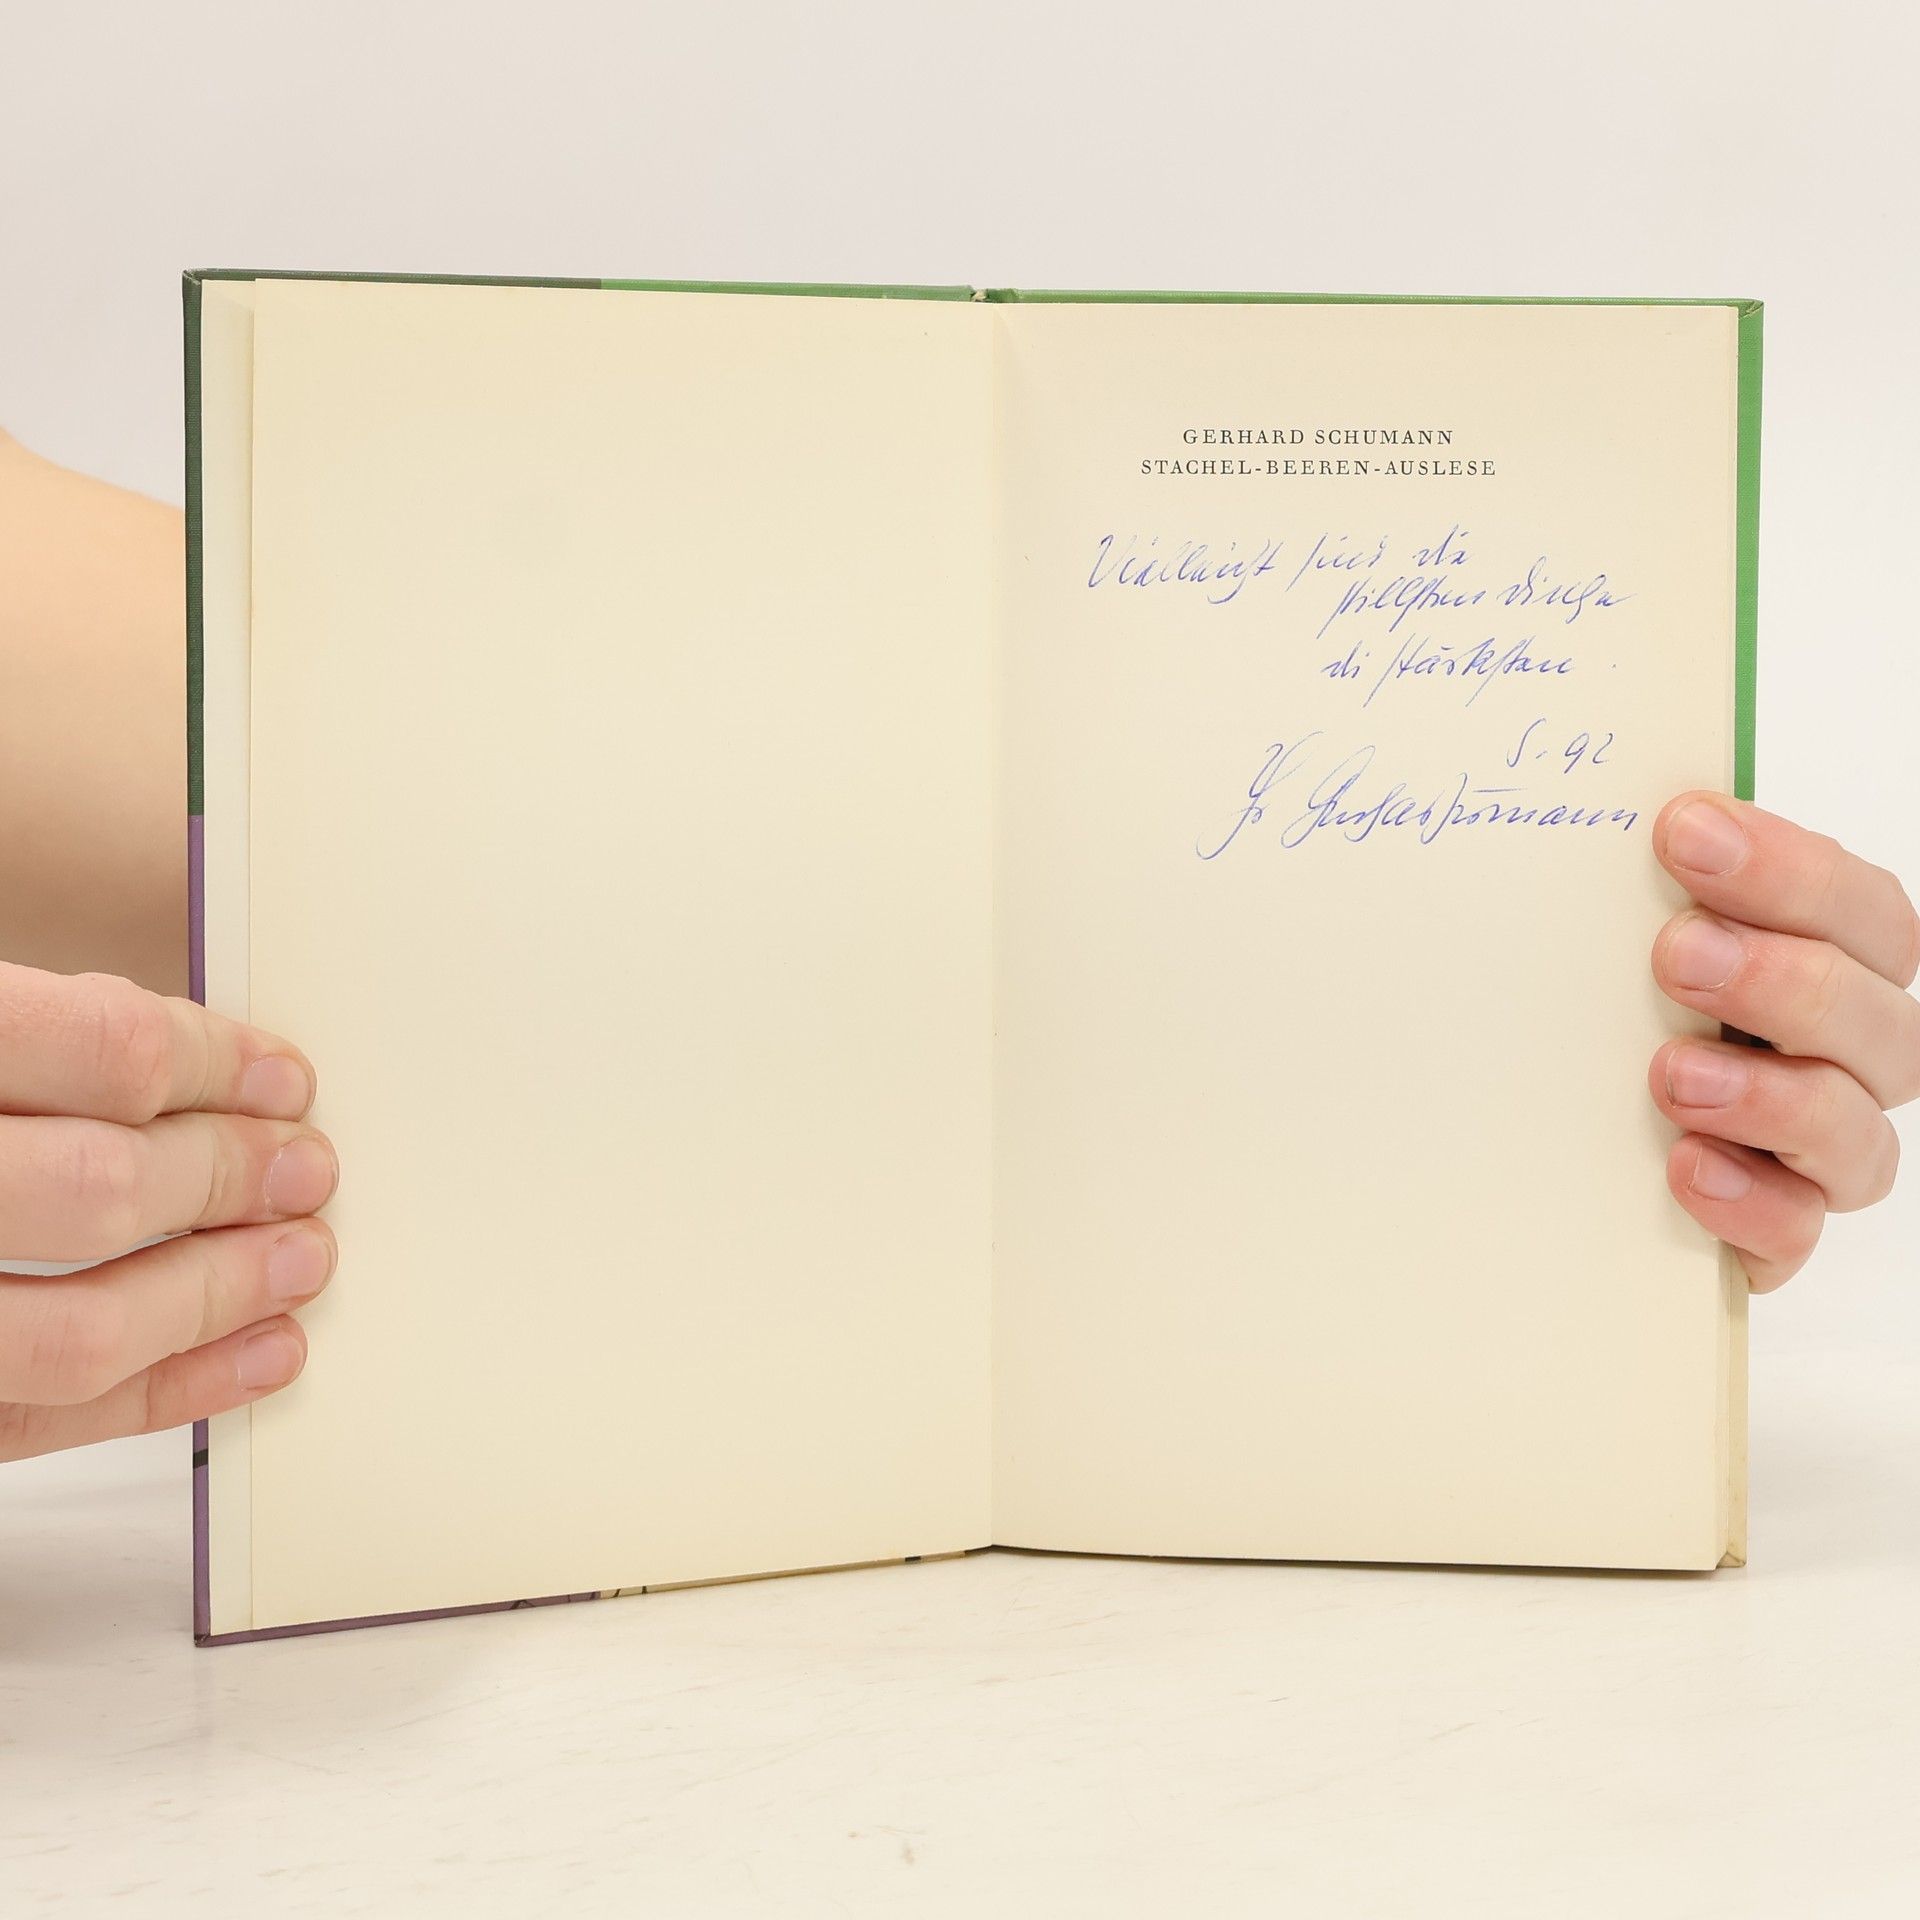 GERHARD SCHUMANN
STACHEL-BEEREN-AUSLESE
Vielleicht sind die
stillsten Dinge
die stärksten.
5. 92